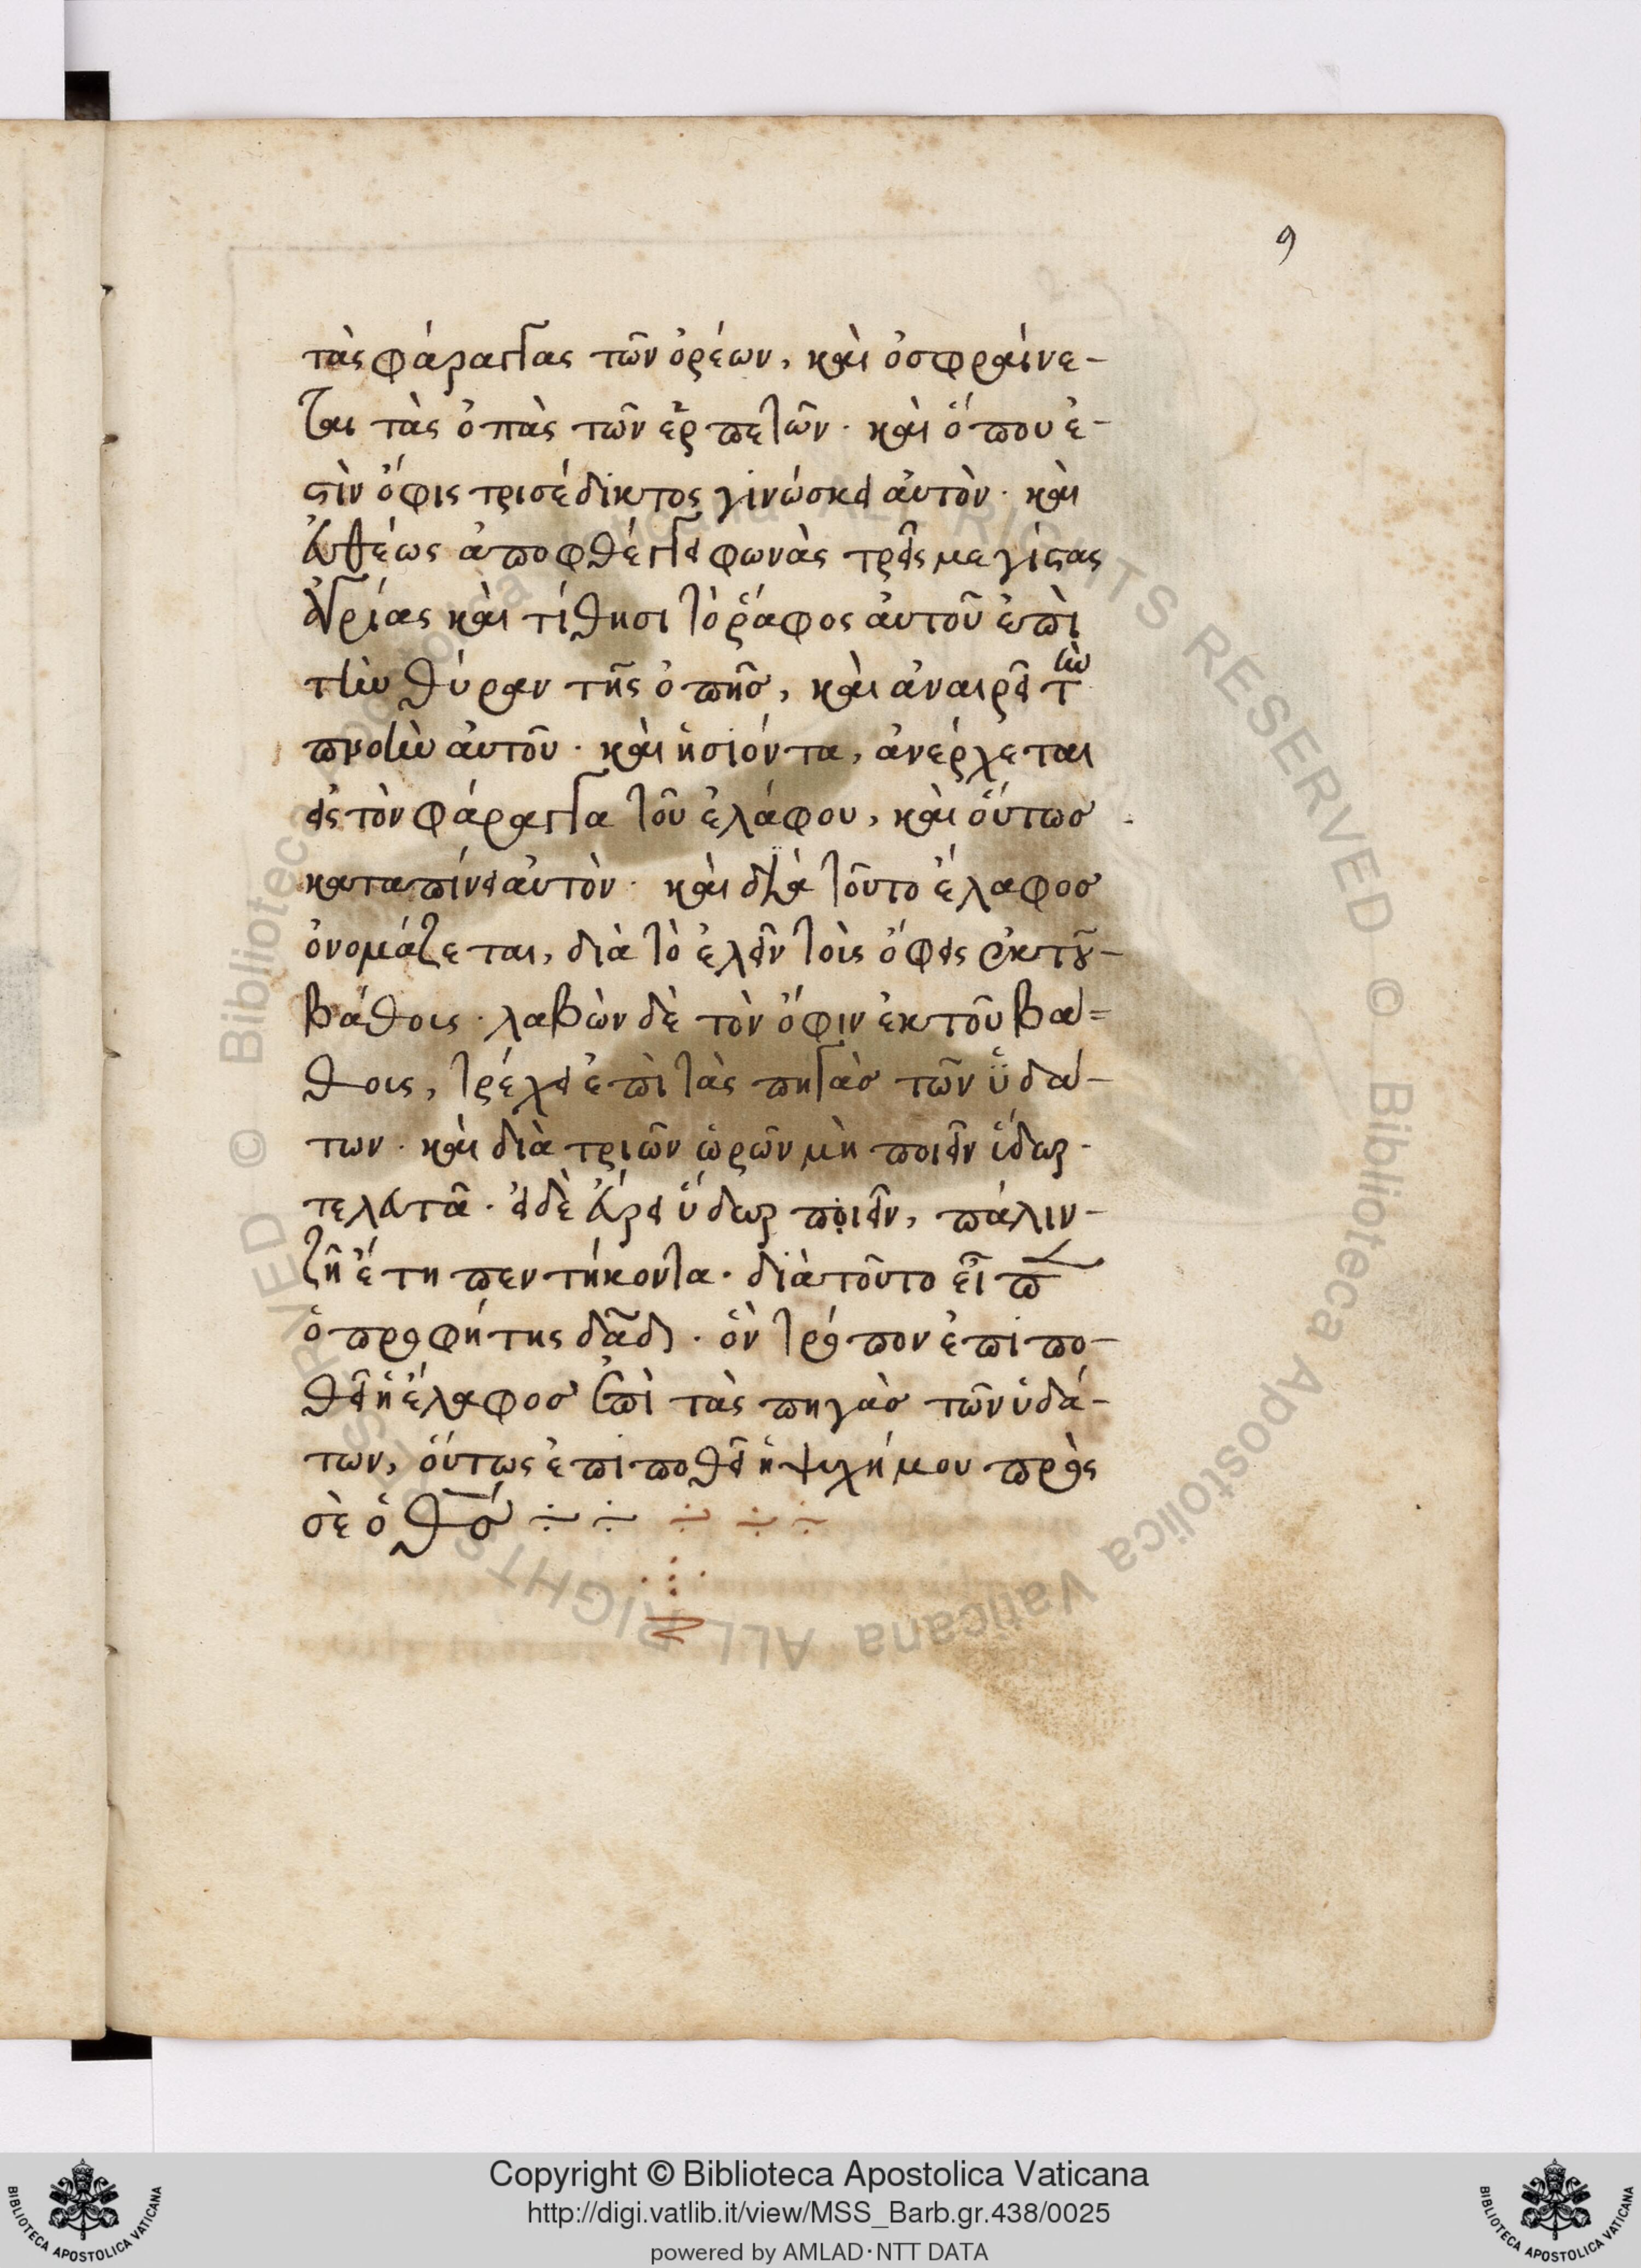 9
τὰς φάραγγας τῶν ὀρέων, καὶ ὀσφραίνε-
ται τὰς ὀπὰς τῶν ἑρπετῶν· καὶ ὅπου ἐ-
στὶν ὄφις τρισέδικτος γινώσκει αὐτὸν· καὶ
εὐθέως ἀποφθέγγει φωνὰς τρεῖς μεγίστας
ἀγρίας καὶ τίθησι τὸ ῥάφος αὐτοῦ ἐπὶ
τὴν θύραν τῆς ὀπῆς, καὶ ἀναιρεῖ τὴν
πνοὴν αὐτοῦ· καὶ ἡσιόντα, ἀνέρχεται
εἰς τὸν φάραγγα τοῦ ἐλάφου, καὶ οὕτως
καταπίνει αὐτὸν· καὶ διὰ τοῦτο ἔλαφος
ὀνομάζεται, διὰ τὸ ἑλεῖν τοὶς ὄφεις ἐκ τοῦ-
βάθοις· λαβὼν δὲ τὸν ὄφιν ἐκ τοῦ βα=
θοις, τρέχει ἐπὶ τὰς πηγὰς τῶν ὑδά-
των· καὶ διὰ τριῶν ὡρῶν μὴ ποιεῖν ὕδωρ-
τελευτᾶ· εἰ δὲ εὕρει ὕδωρ ποιεῖν, πάλιν-
ζῆ ἔτη πεντήκοντα· διὰ τοῦτο εἶπ
ὁ προφήτης δᾱδ· ὃν τρόπον ἐπιπο-
θεῖ ἡ ἔλαφος ἐπὶ τὰς πηγὰς τῶν ὑδά-
των, οὕτως ἐπιποθεῖ ἡ ψυχή μου πρὸς
σὲ ὁ θς
Copyright © Biblioteca Apostolica Vaticana
http://digi.vatlib.it/view/MSS_Barb.gr.438/0025
powered by AMLAD·NTT DATA
BIBLIOTECA APOSTOLICA VATICANA
BIBLIOTECA APOSTOLICA VATICANA
© Biblioteca Apostolica Vaticana ALL RIGHTS RESERVED © Biblioteca Apostolica Vaticana ALL RIGHTS RESERVED